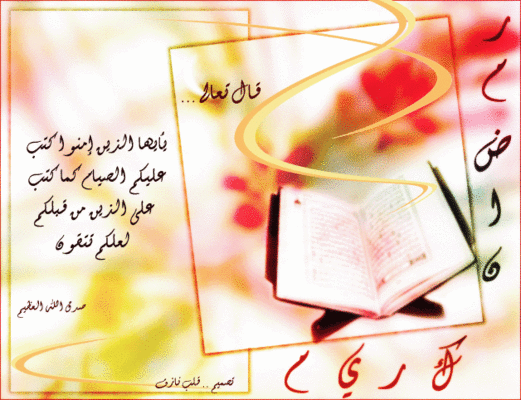 رمضان
كريم
قال تعالى ...
يأيها الذين إمنوا كتب
عليكم الصيام كما كتب
على الذين من قبلكم
لعلكم تتقون
صدق الله العظيم
تصميم .. قلب نازف